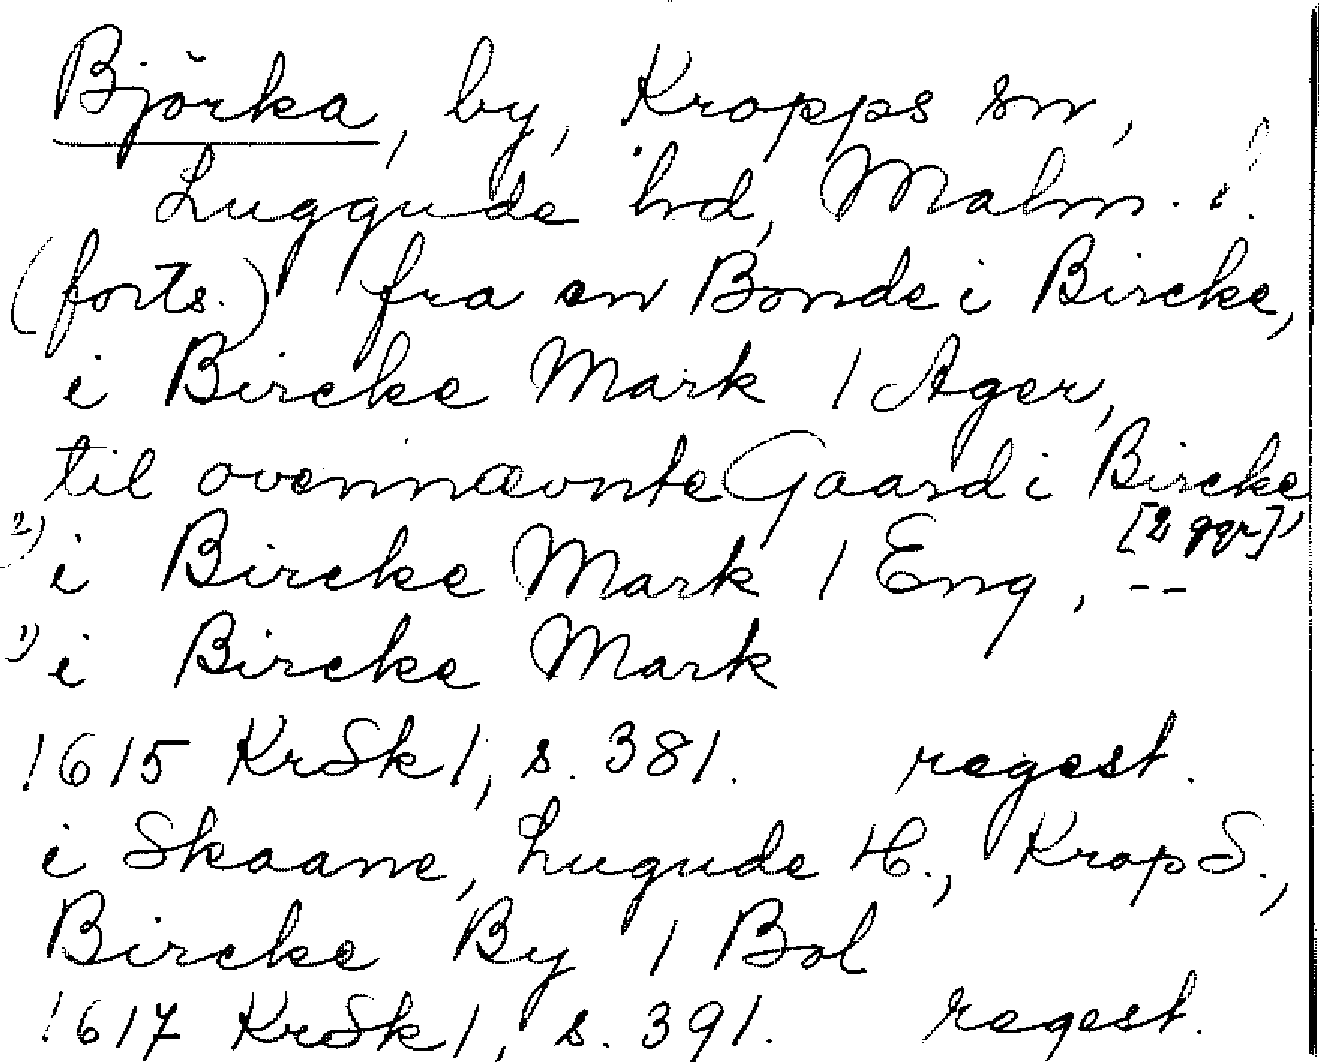 Björka, by, Kropps sn,
Luggude hd, Malm. l.
(forts.) fra en Bonde i Bircke,
i Bircke Mark 1 Ager,
til ovennævnte Gaard i Bircke
[2 ggr],
2) i Bircke Mark 1 Eng, --
1) i Bircke Mark
1615 KrSk 1, s. 381. regest.
i Skaane, Lugude H., Krop S.,
Bircke By 1 Bol
1617 KrSk 1, s. 391. regest.